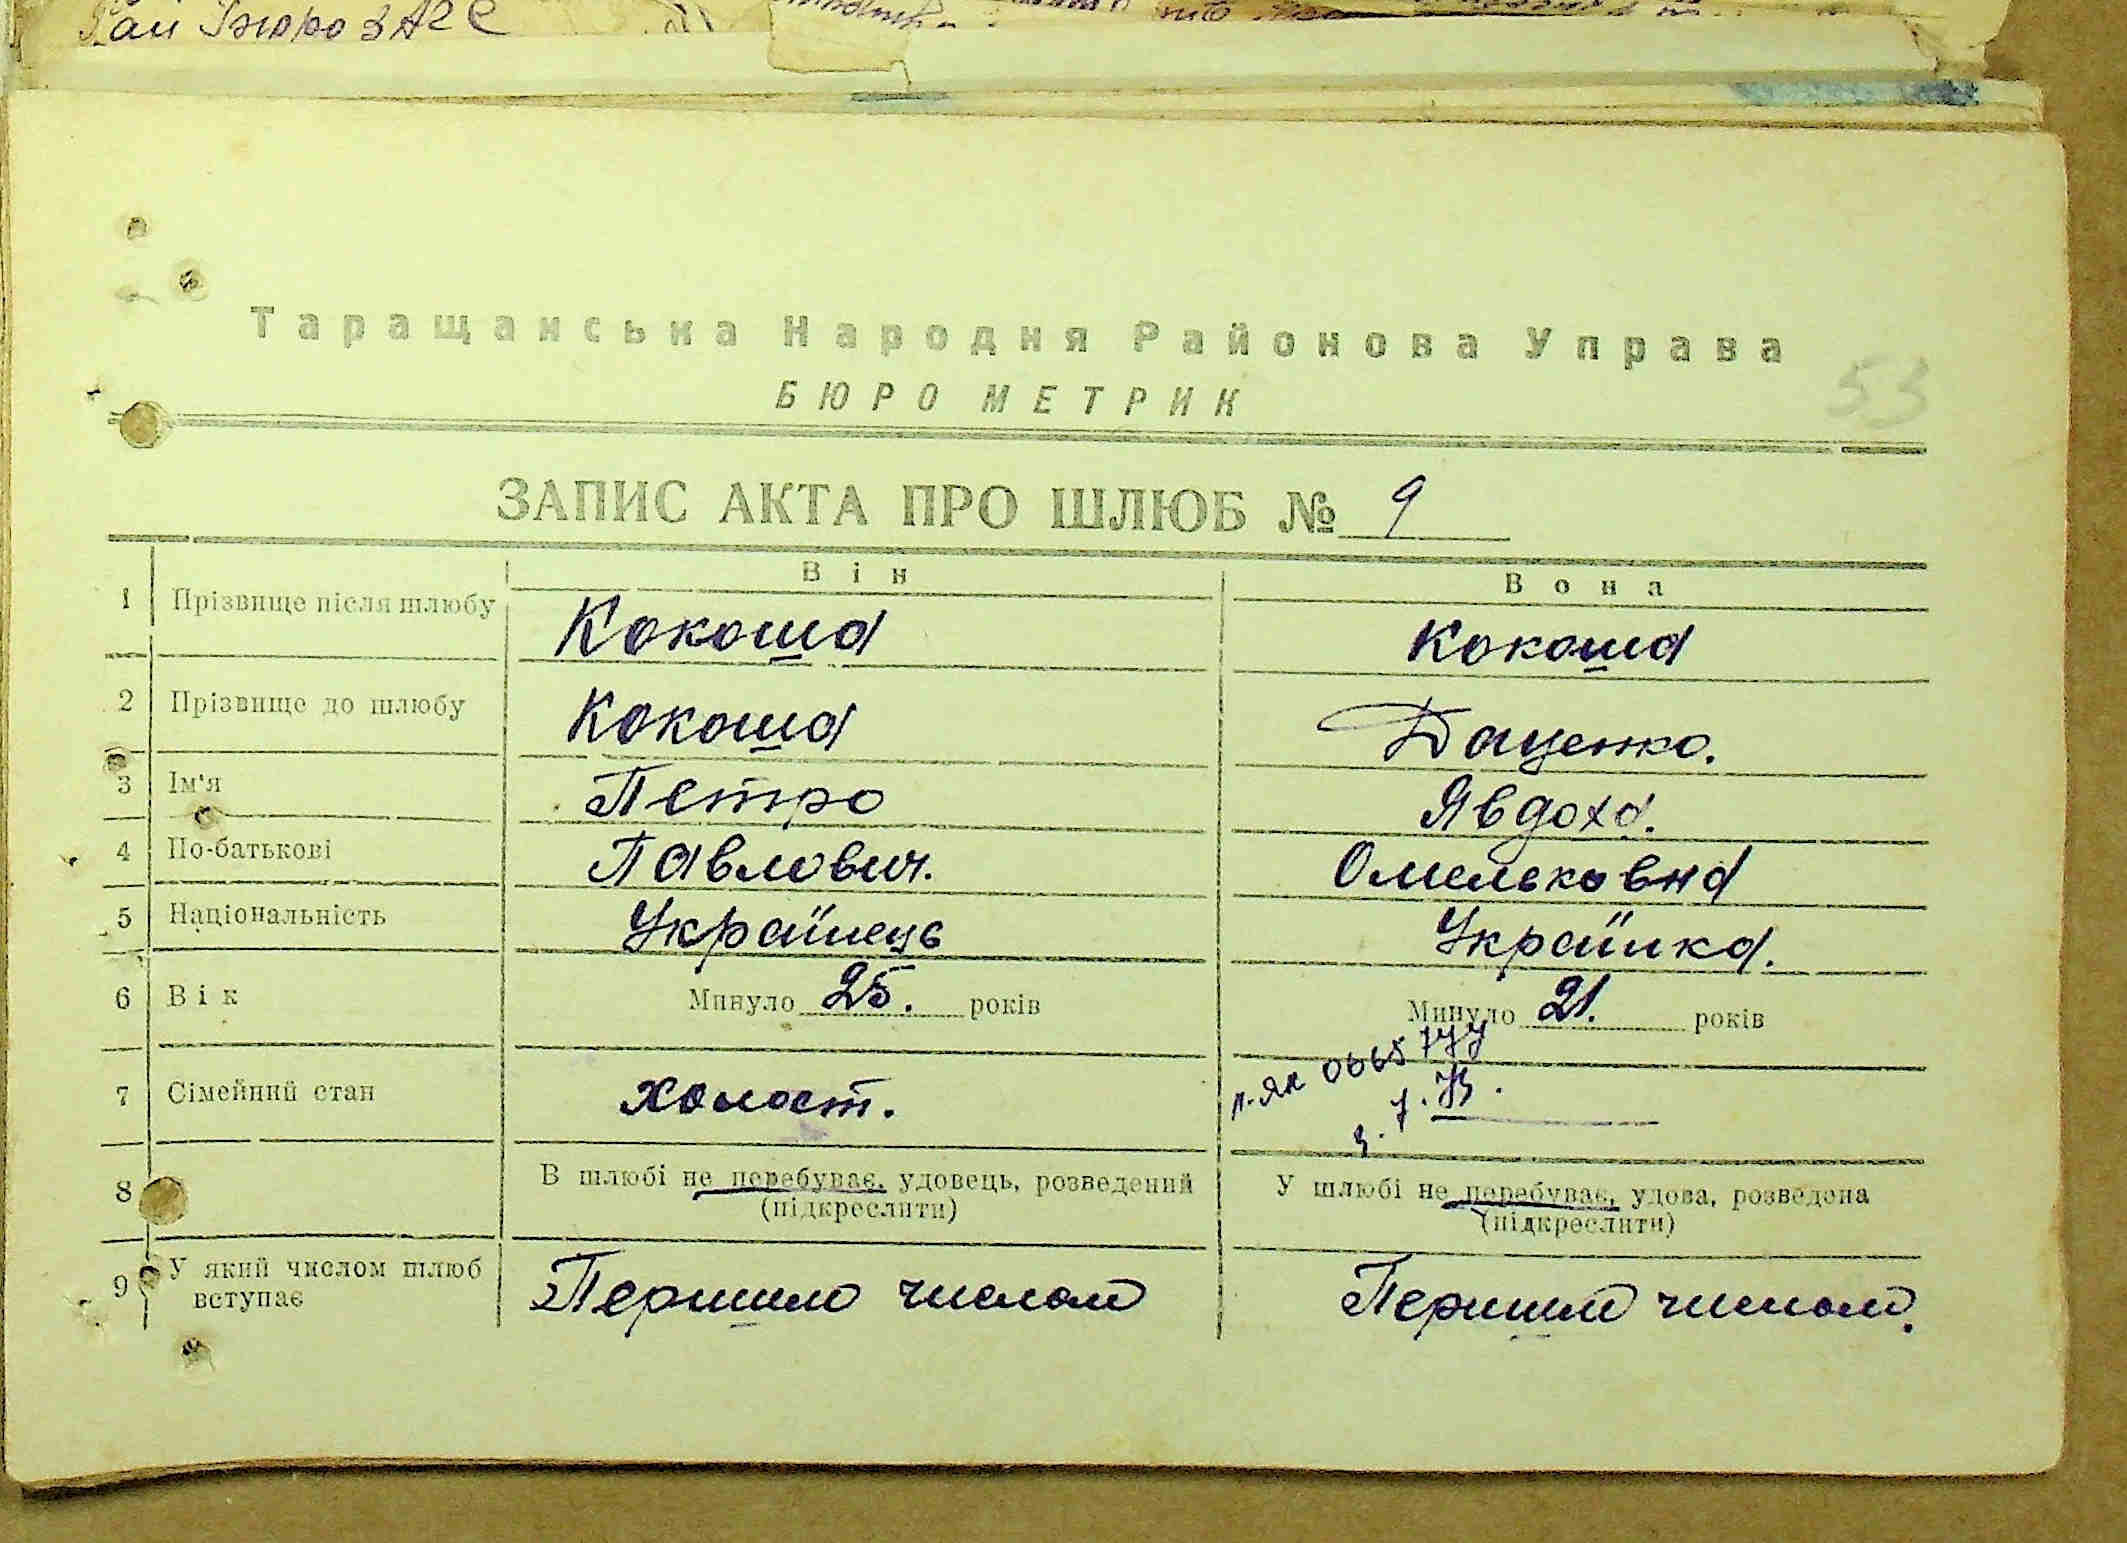 Рай Бюро ЗАГС
Таращанська Народня Районова Управа
БЮРО МЕТРИК
53
ЗАПИС АКТА ПРО ШЛЮБ № 9
Він Вона
1 Прізвище після шлюбу Кокоша Кокоша
2 Прізвище до шлюбу Кокоша Даценко.
3 Ім'я Петро Явдоха.
4 По-батькові Павлович. Омельковна
5 Національність Українець Українка.
6 Вік Минуло 25. років Минуло 21. років
7 Сімейний стан холост.
8 В шлюбі не перебуває, удовець, розведений У шлюбі не перебуває, удова, розведена
(підкреслити) (підкреслити)
9 У який числом шлюб Першим числом Першим числом.
вступає